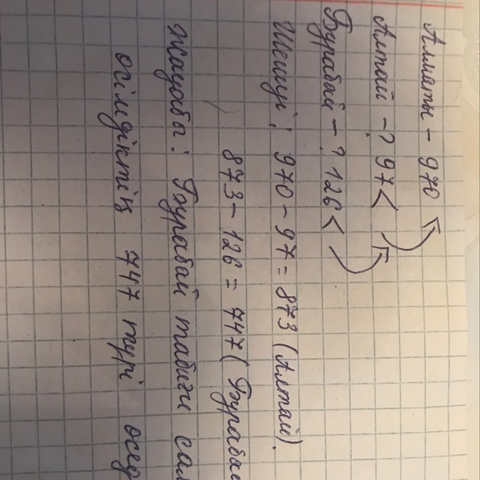 Алматы – 970
Алтай – ? 97 <
Бурабай – ? 126 <
Шешуі: 970 – 97 = 873 (Алтай).
873 – 126 = 747 (Бурабай
Жауабы: Бурабай табиғи сал
өсімдіктің 747 түрі өсед